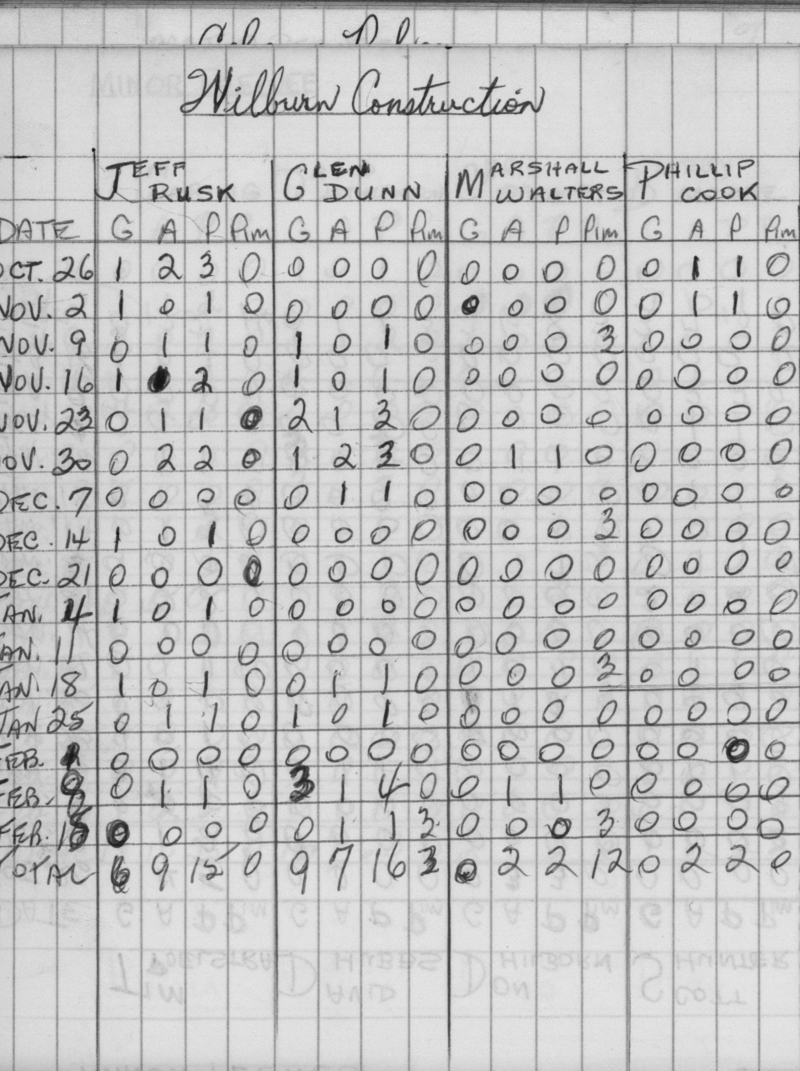 Wilburn Construction
JEFF RUSK GLEN DUNN MARSHALL WALTERS PHILLIP COOK
DATE G A P Pim G A P Pim G A P Pim G A P Pim
OCT. 26 1 2 3 0 0 0 0 0 0 0 0 0 0 1 1 0
NOV. 2 1 0 1 0 0 0 0 0 0 0 0 0 0 1 1 0
NOV. 9 0 1 1 0 1 0 1 0 0 0 0 3 0 0 0 0
NOV. 16 1 2 0 1 0 1 0 0 0 0 0 0 0 0 0
NOV. 23 0 1 1 0 2 1 3 0 0 0 0 0 0 0 0 0
NOV. 30 0 2 2 0 1 2 3 0 0 1 1 0 0 0 0 0
DEC. 7 0 0 0 0 0 1 1 0 0 0 0 0 0 0 0 0
DEC. 14 1 0 1 0 0 0 0 0 0 0 0 3 0 0 0 0
DEC. 21 0 0 0 0 0 0 0 0 0 0 0 0 0 0 0 0
JAN. 4 1 0 1 0 0 0 0 0 0 0 0 0 0 0 0 0
JAN. 11 0 0 0 0 0 0 0 0 0 0 0 0 0 0 0 0
JAN. 18 1 0 1 0 0 1 1 0 0 0 0 3 0 0 0 0
JAN 25 0 1 1 0 1 0 1 0 0 0 0 0 0 0 0 0
FEB. 1 0 0 0 0 0 0 0 0 0 0 0 0 0 0 0 0
FEB. 8 0 1 1 0 3 1 4 0 0 1 1 0 0 0 0 0
FEB. 15 0 0 0 0 0 1 1 3 0 0 0 3 0 0 0 0
TOTAL 6 9 15 0 9 7 16 3 0 2 2 12 0 2 2 0